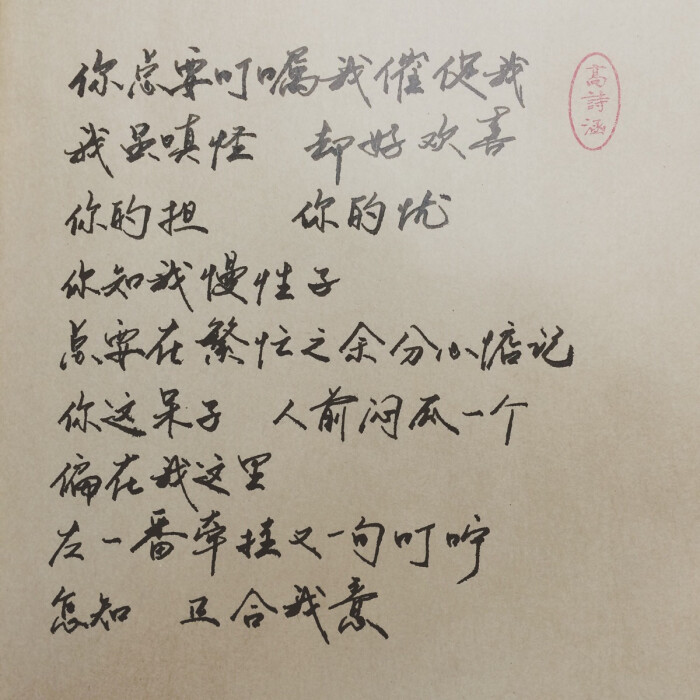 你总要叮嘱我催促我
我虽嗔怪 却好欢喜
你的担 你的忧
你知我慢性子
总要在繁忙之余分心惦记
你这呆子 人前闷瓜一个
偏在我这里
左一番牵挂又一句叮咛
怎知 正合我意
高詩涵